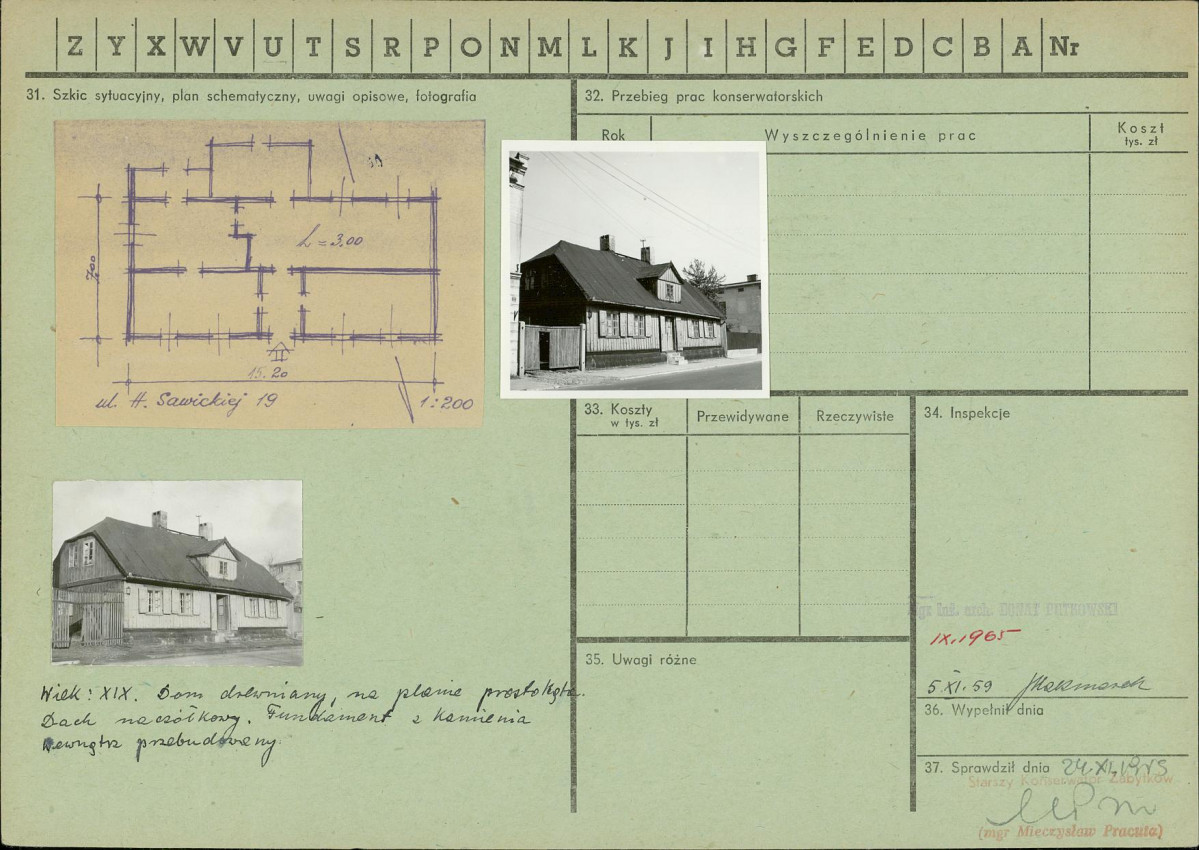 Z Y X W V U T S R P O N M L K J I H G F E D C B A Nr
31. Szkic sytuacyjny, plan schematyczny, uwagi opisowe, fotografia
h = 3.00
7.00
15.20
ul. H. Sawickiej 19 1:200
Wiek: XIX. Dom drewniany, na planie prostokąta.
Dach naczółkowy. Fundament z kamienia
Wewnątrz przebudowany.
32. Przebieg prac konserwatorskich
Rok Wyszczególnienie prac Koszt
tys. zł
33. Koszty
w tys. zł
Przewidywane Rzeczywiste
34. Inspekcje
mgr inż. arch.
IX.1965
5.XI.59
35. Uwagi różne
36. Wypełnił dnia
37. Sprawdził dnia 24.XI.
Starszy Konserwator Zabytków
(mgr Mieczysław Pracuta)